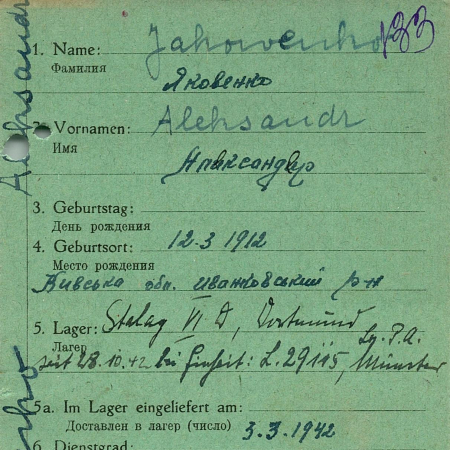 133
1. Name: Jakowenko
Фамилия
Яковенко
2. Vornamen: Aleksandr
Имя
Алаксандер
3. Geburtstag:
День рождения
12.3 1912
4. Geburtsort:
Место рождения
Кивська обл. Іванковський р-н
5. Lager: Stalag VI D, Dortmund
Лагерь
Lg. P.A.
seit 28.10.42 bei Einheit: L. 29115, Münster
5a. Im Lager eingeliefert am:
Доставлен в лагер (число) 3.3.1942
6. Dienstgrad:
Aleksandr